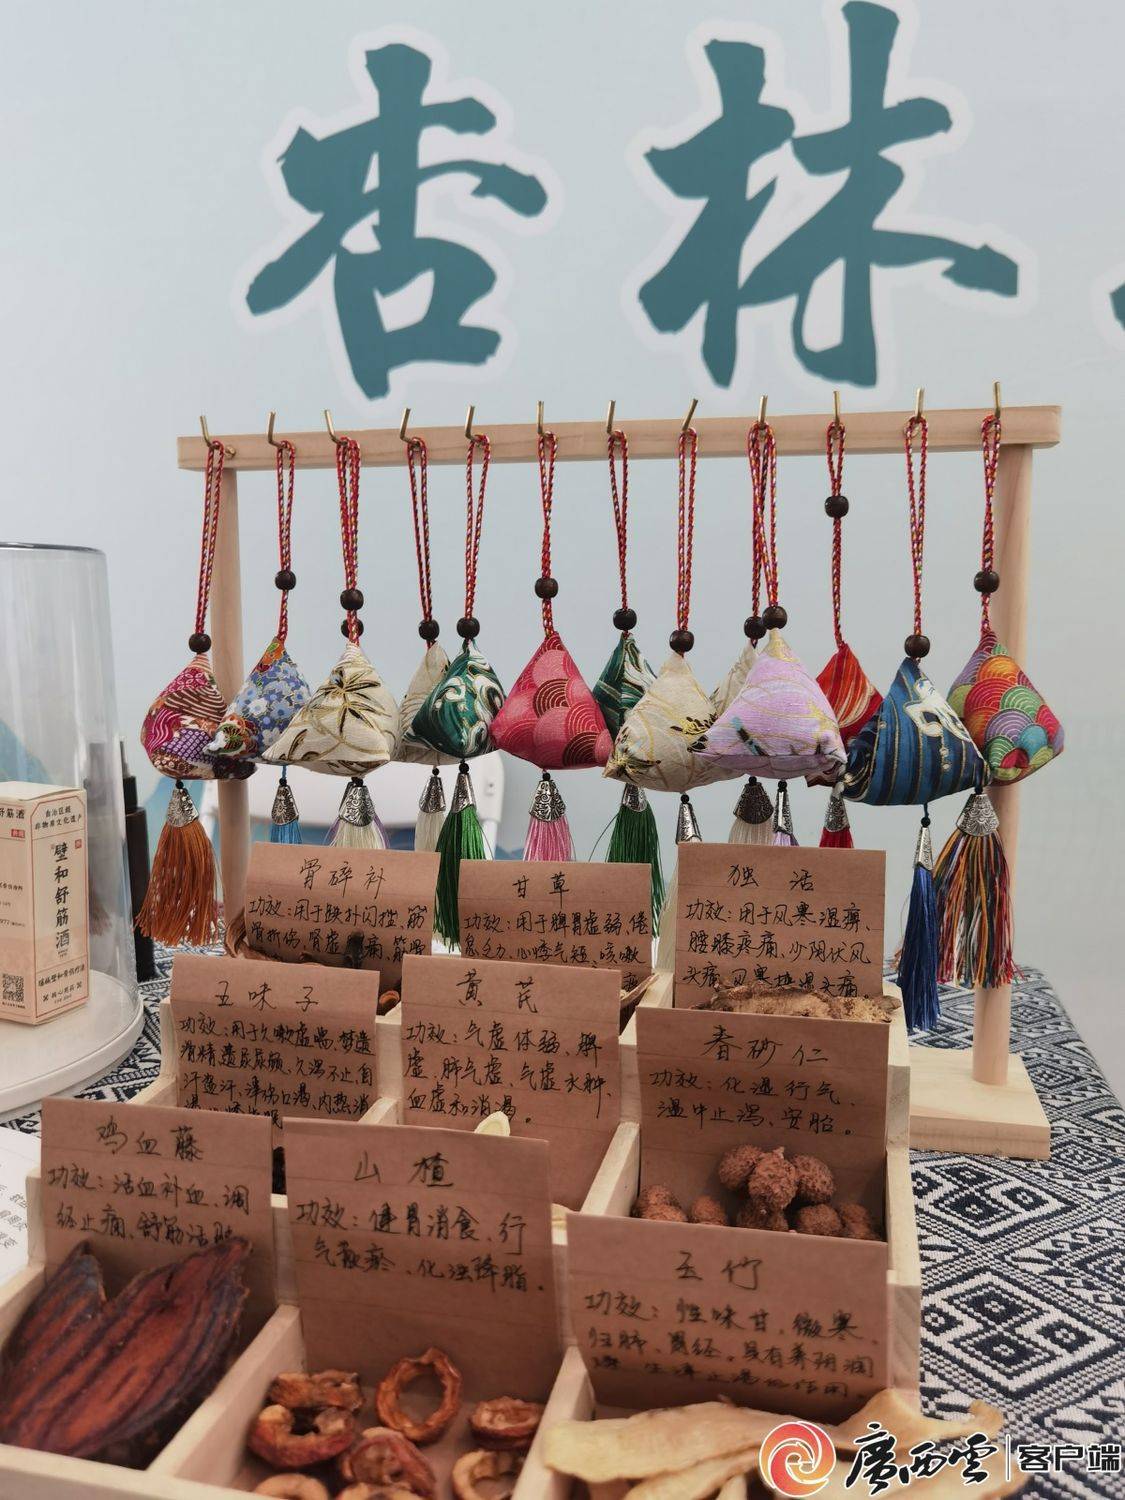 杏林
舒筋酒
自治区级
非物质文化遗产
壁和舒筋酒
骨碎补
功效:用于跌扑闪挫、筋
骨折伤、肾虚
甘草
功效:用于脾胃虚弱、倦
怠乏力、心悸气短、咳嗽
独活
功效:用于风寒湿痹、
腰膝疼痛、少阴伏风
头痛、风寒挟湿头痛
五味子
功效:用于久嗽虚喘、梦遗
滑精遗尿尿频、久泻不止、自
汗盗汗、津伤口渴、内热消
黄芪
功效:气虚体弱、脾
虚、肺气虚、气虚水肿、
血虚和消渴。
春砂仁
功效:化湿行气、
温中止泻、安胎。
鸡血藤
功效:活血补血、调
经止痛、舒筋活
山楂
功效:健胃消食、行
气散瘀、化浊降脂。
玉竹
功效:性味甘、微寒、
归肺、胃经。具有养阴润
燥、生津止渴的作用。
廣西雲 客户端